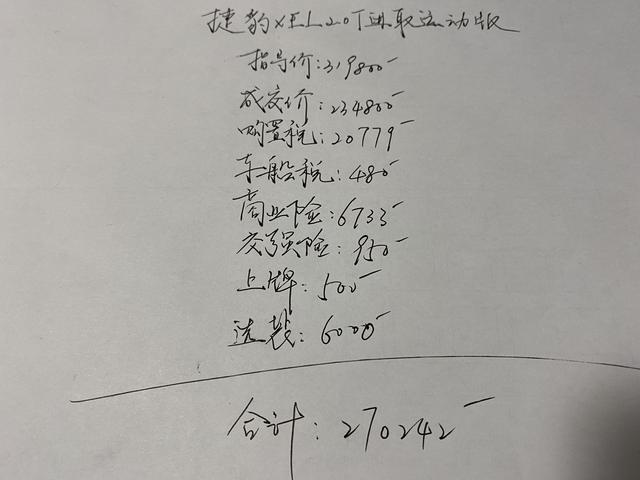 捷豹XEL 2.0T进取运动版
指导价:319800
成交价:234800
购置税:20779
车船税:480
商业险:6733
交强险:950
上牌:500
选装:6000
合计:270242